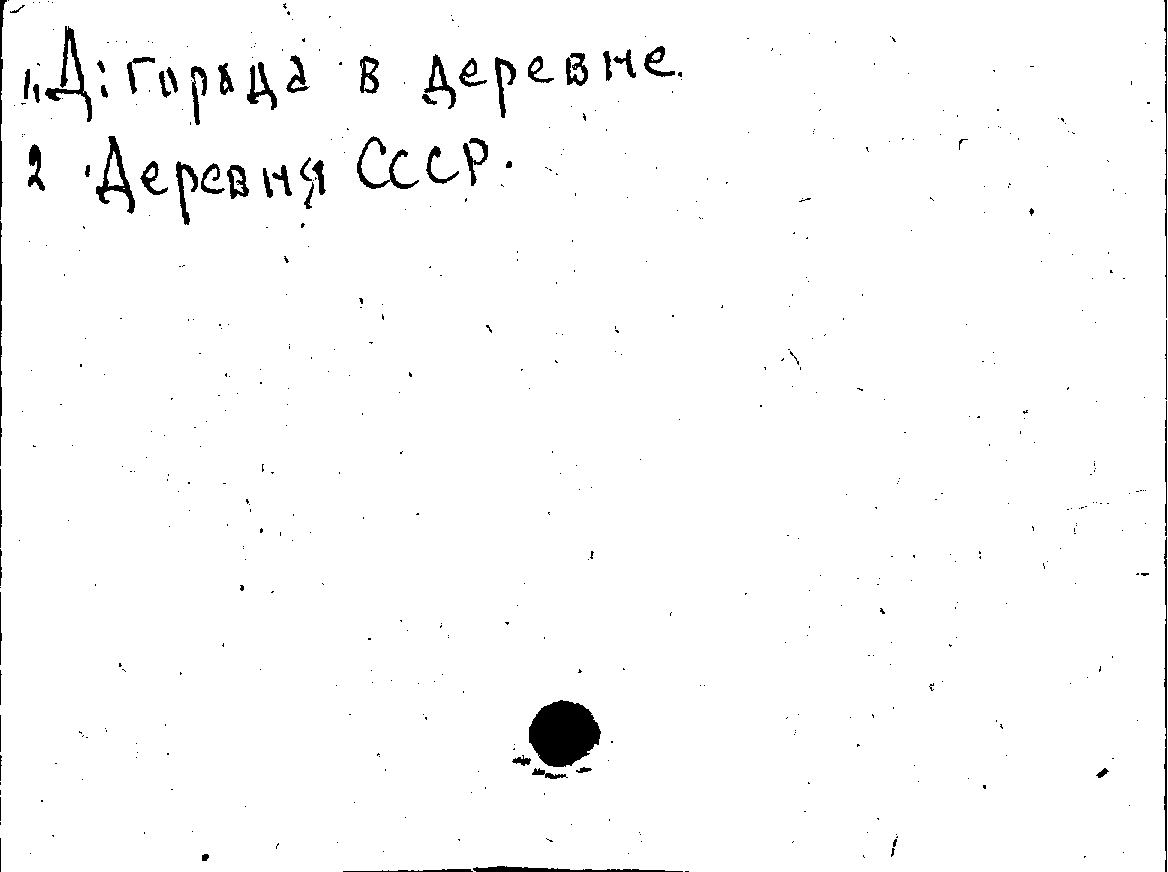 1. Д: города в деревне.
2 Деревня СССР.